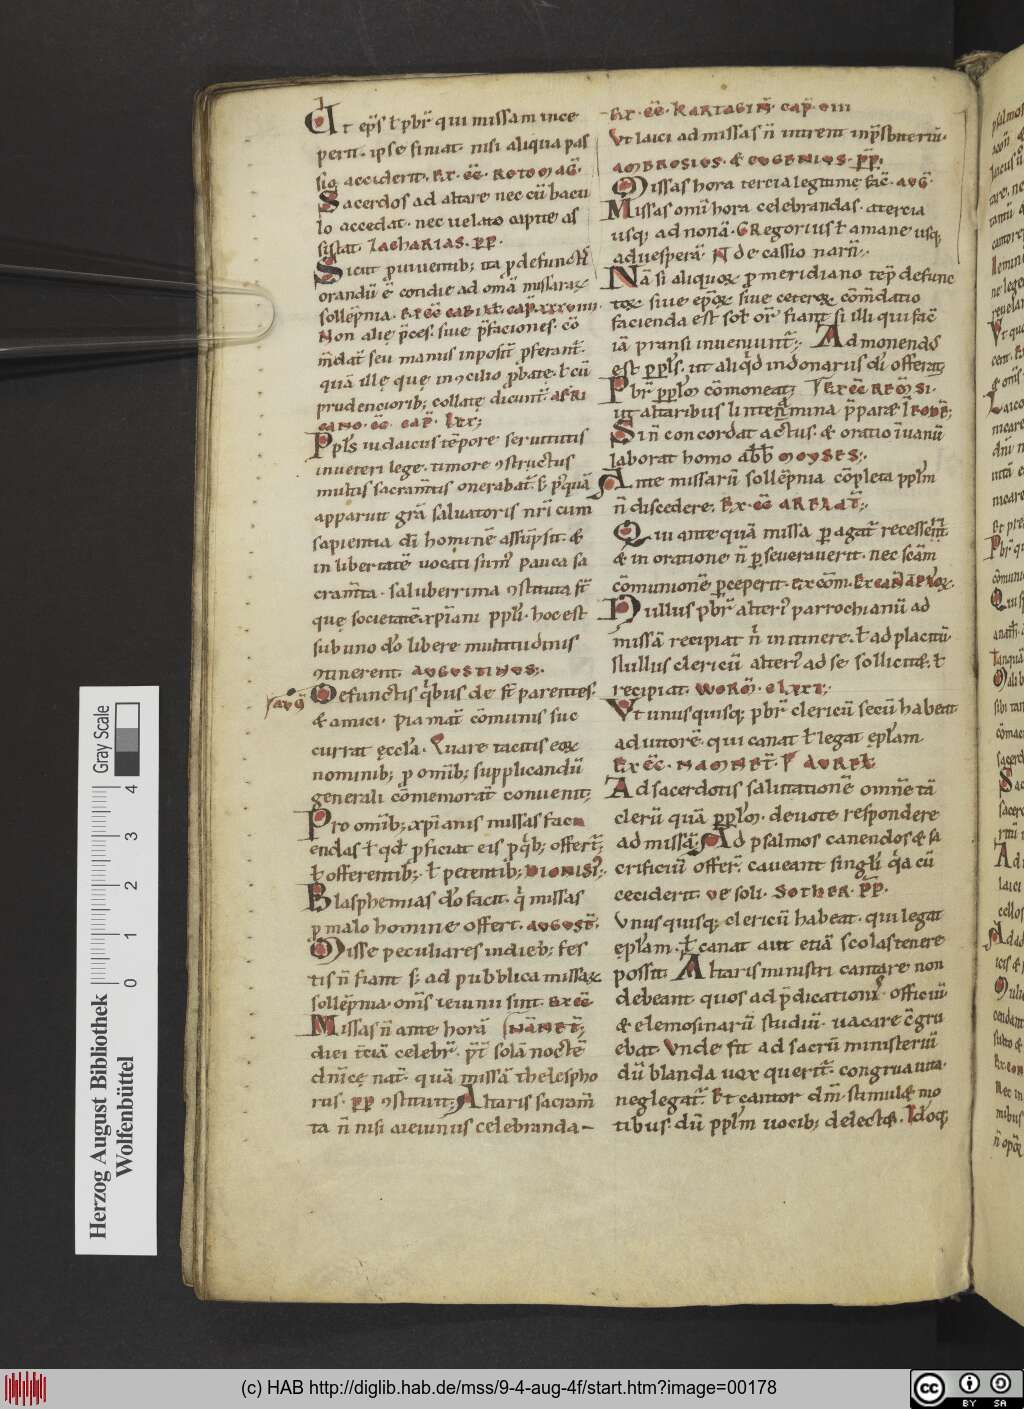 Ut ep̄s ł p̄br̄ qui missam ince
perit· ipse finiat· nisi aliqua pas
sio acciderit· Ex c̄c̄· ROTOMAḠ·
Sacerdos ad altare nec cū bacu
lo accedat· nec uelato capite as
sistat· ZACHARIAS· P̄P̄·
Sicut p uiuentib; ita p defunctis
orandū ē cotidie ad om̄ā missarū
sollēpnia·
Non alię p̄ces· siue p̄faciones· cō
m̄dat̄ seu manus inposit̄ p̄ferant̄·
quā illę quę in ꝯcilio p̄bate· ł cū
prudencioribꝫ collatę dicunt̄· AFRI
CANO· C̄C̄· CAP̄· LXX;
Ppl̄s iudaicus tēpore seruitutis
inueteri lege· timore ꝯstructus
multis sacram̄tis onerabat̄· S; p̄quā
apparuit gr̄a saluatoris nr̄i cum
sapientia dī homine assūpsit· &
in libertatē uocati sum᷒ pauca sa
cram̄ta· saluberrima ꝯstituta st̄
quę societatē xp̄iani ppl̄i· hoc est
sub uno dō libere multitudinis
ꝯtinerent· AUGUSTINUS;·
Defunctis q̇bus de st̄ parentes·
& amici· pia mat̄ cōmunis suc
currat ęccl̄a· Quare tacitis eoꝝ
nominib; p omīb; supplicandū
generali cōmemorat̄ conuenit;
Pro omīb; xp̄ianis missas faci
endas ł qd̄ p̄ficiat eis p q̇b; offert̄;
ł offerentib; ł petentib; DIONISI᷒;·
Blasphemias dō facit· q̇ missas
p malo homine offert· AUGUST̄;
Misse peculiares indieb; fes
tis n̄ fiant s; ad pubblica missaꝝ
sollēpnia· om̄s ieiunii sint· EX C̄C̄
Missas n̄ ante horā NĀNET̄;
diei t̄ciā celebr̄· p̄t̄ solā noctē
dnīcę nat̄· quā missā thelespho
rus· p̄p̄ ꝯstituit; Altaris sacram̄
ta n̄ nisi aieiunus celebranda–
s auḡ
EX· C̄C̄· KARTAGIN̄· CAP̄· VIII
Ut laici ad missas n̄ intrent inp̄sbiteriū·
AMBROSIUS· & EUGENIUS· P̄P̄;
Missas hora tercia legitime fac̄· AUḠ·
Missas omī hora celebrandas· a tercia
usq; ad nonā· GREGORIUS ł amane usq;
aduesperā· N de cassio narn̄·
Nā si aliquoꝝ p meridiano tēp defunc
toꝝ siue ep̄oꝝ siue ceteroꝝ cōm̄datio
facienda est sol̄ or̄ fiant si illi qui fac̄
iā pransi inueniunt̄; Admonendꝰ
est ppl̄s· ut aliq̇d in donarus dī offerat;
Pbr̄ ppl̄m cōmoneat; EX C̄C̄ REM̄SI·
ut altaribus
Si n̄ concordat actus· & oratio ī uanū
laborat homo abb̄ MOYSES;·
Ante missarū sollēpnia cōpleta ppl̄m
n̄ discedere· EX· C̄C̄ ARELAT̄;·
Qui ante quā missa pagat̄ recesserit·
& in oratione n̄ p̄seuerauerit· nec scām
cōmunionē p̄ceperit·
Nullus pbr̄ alteri᷒ parrochianū ad
missā recipiat n̄ in itinere· ł ad placitū·
s; nullus clericū alteri᷒ ad se sollicitet· ł
recipiat· WORM̄· CLXXI;·
Ut unusquisq; pbr̄ clericū secū habeat
adiutorē· qui canat ł legat ępl̄am
EX C̄C̄· NAMNET̄·
Ad sacerdotis salutationē omne tā
clerū quā ppl̄m· deuote respondere
ad missā; Ad psalmos canendos & sa
crificiū offer̄· caueant singl̄i q̇a cū
ceciderit· ue soli· SOTHER· P̄P̄·
Unusquisq; clericū habeat· qui legat
ępl̄am· ł canat aut etiā scolas tenere
possit· Altaris ministri cantare non
debeant quos ad p̄dicationis officiū·
& elemosinarū studiū· uacare c̄gru
ebat· Unde fit ad sacrū ministeriū
dū blanda uox querit̄· congrua uita·
neglegat̄· Et cantor dm̄· stimulat mo
tibus· dū ppl̄m uocib; delectat· Idoq;
Herzog August Bibliothek
Wolfenbüttel
0 1 2 3 4
Gray Scale
(c) HAB http://diglib.hab.de/mss/9-4-aug-4f/start.htm?image=00178
cc BY SA